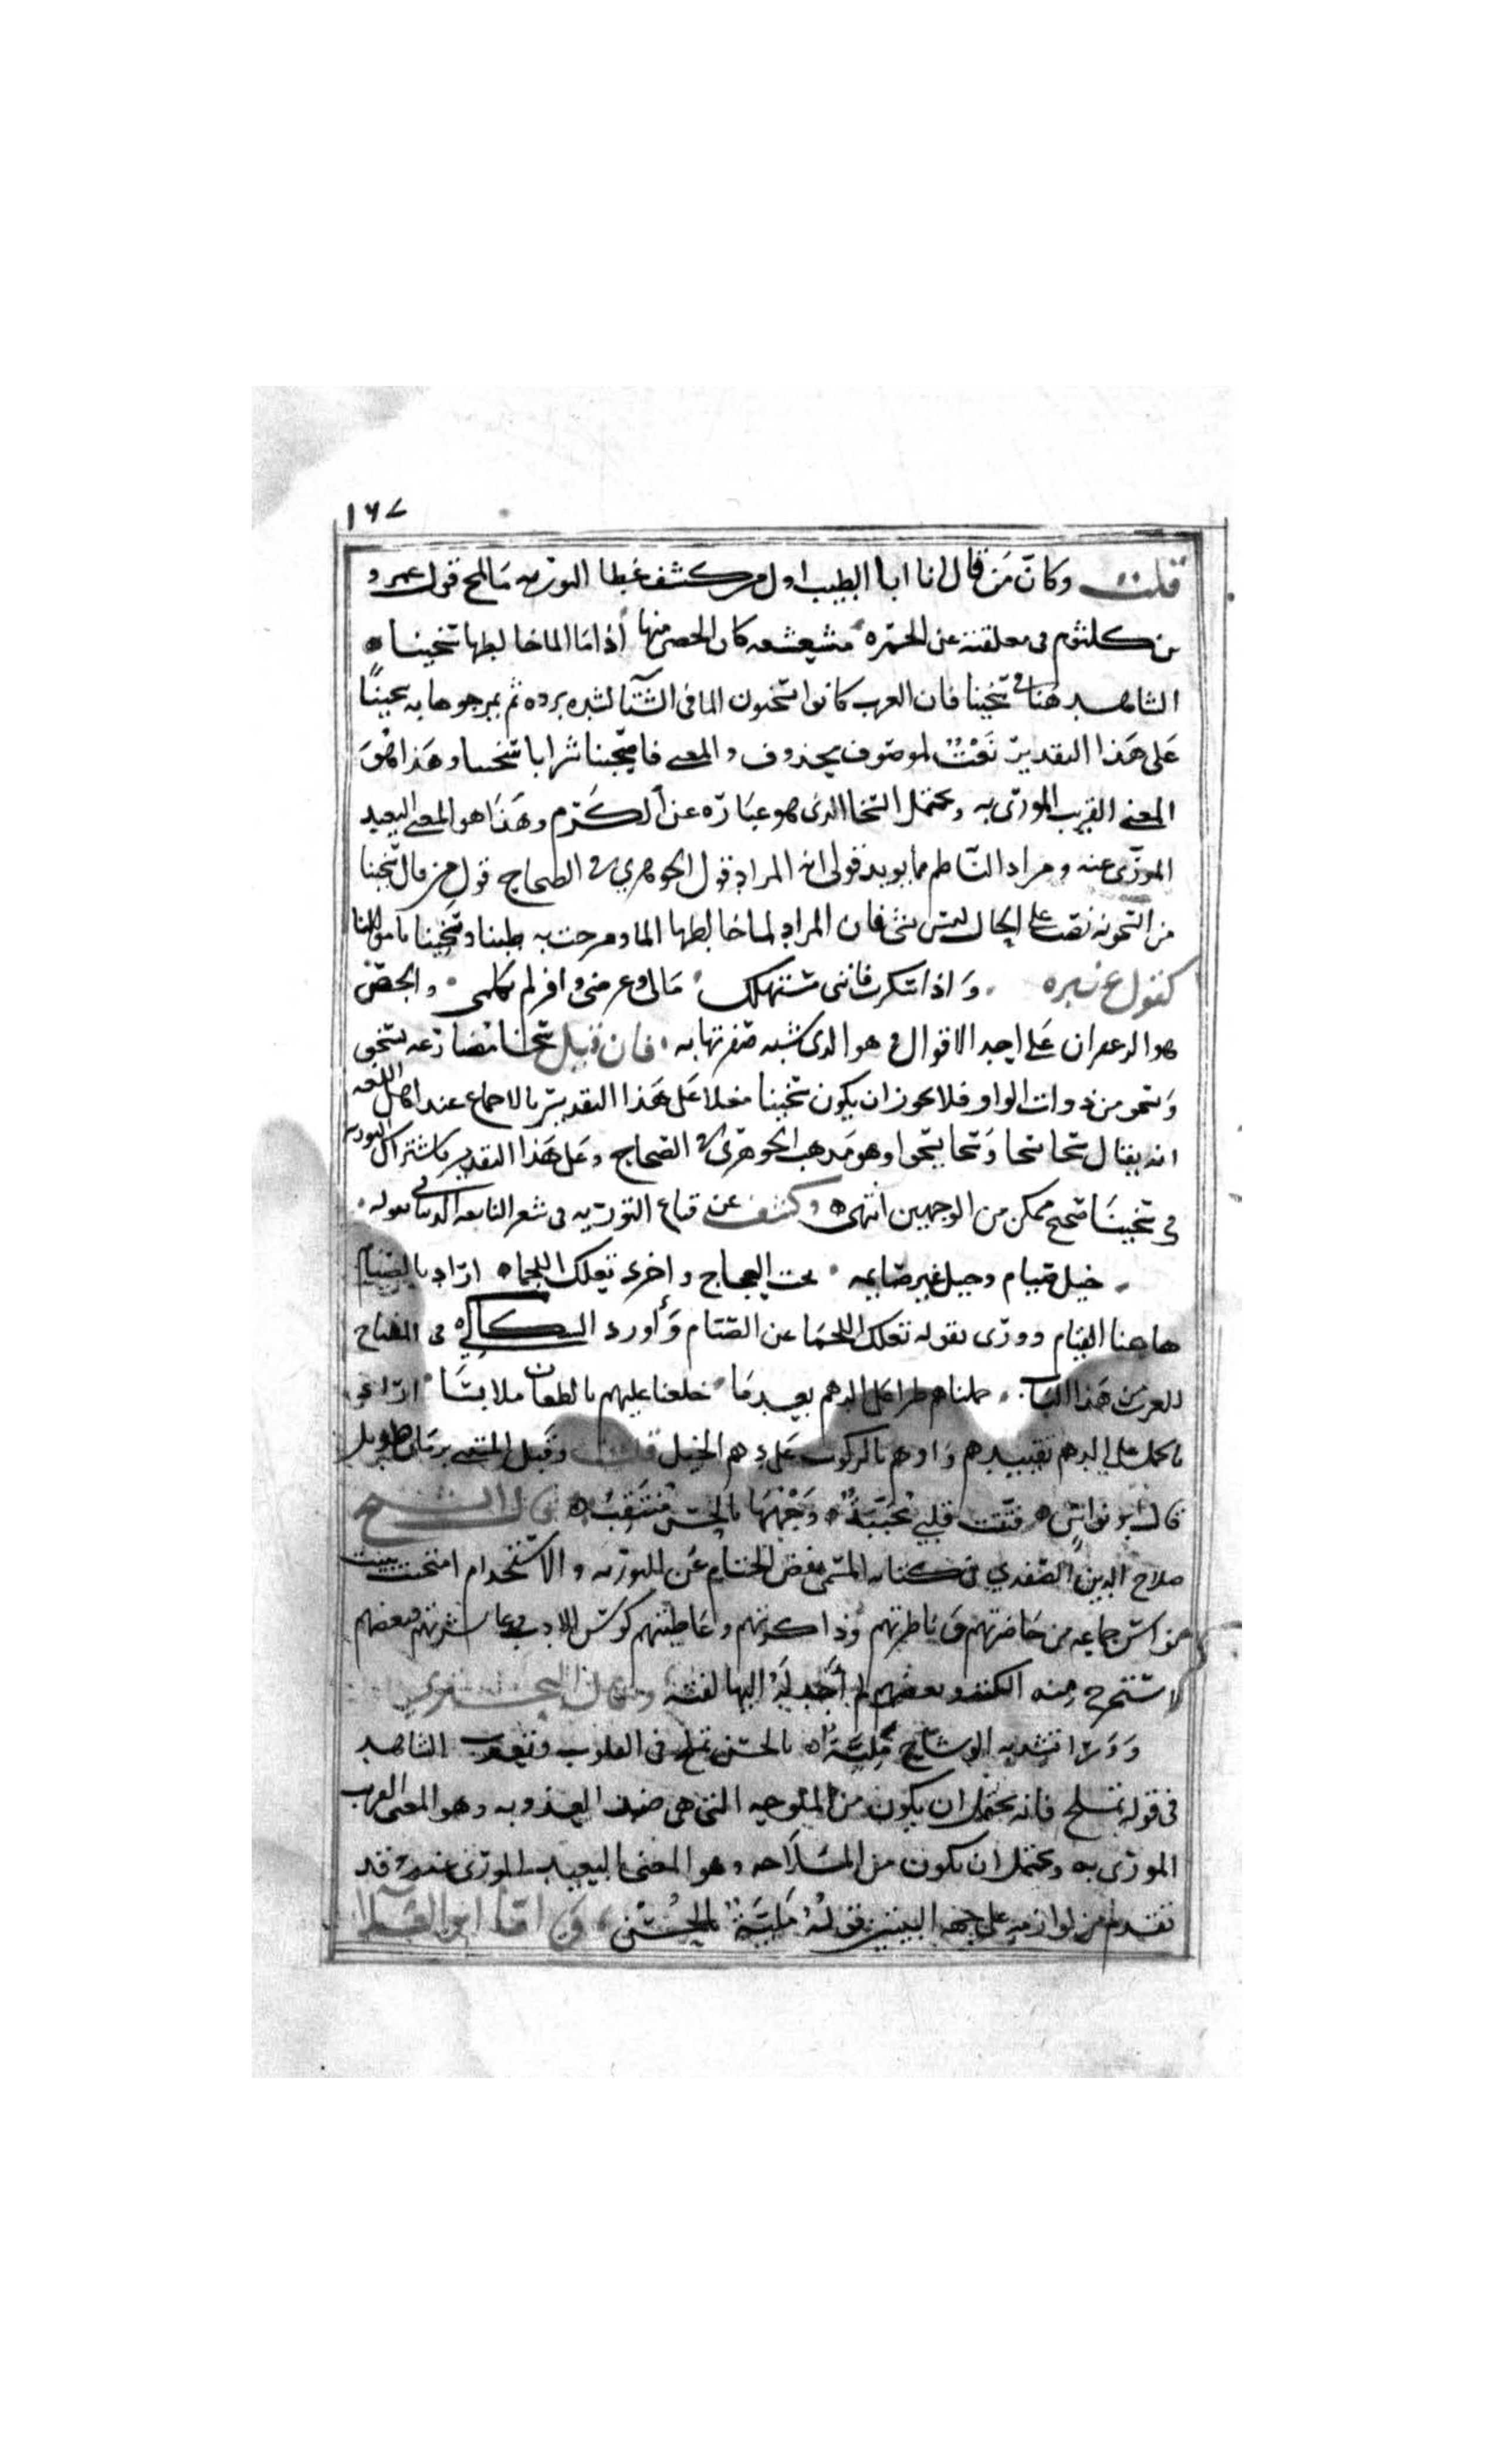 ١٦٧
قلت وكان من قال انا ابا الطيب اول من كشف غطا التوريه ما لمح قول عمرو
بن كلثوم فى معلقته عن الخمره مشعشعه كان الحص منها اذا ما الما خالطها سخينا
الشاهد هنا فى سخينا فان العرب كانوا يسخنون الما فى الشتا لشده برده ثم يمزجوها به سخينًا
على هذا التقدير نَعْتٌ لموصوف محذوف والمعنى فاصبحينا شرابا سخينا وهذا هو
المعنى القريب المورّى به ويحتمل السخا الذى هو عبارة عن الكرم وهذا هو المعنى البعيد
المورّى عنه ومراد الناظم مما يويد قولى انه المراد قول الجوهري فى الصحاح قول من قال سخينا
من السخونه نصب على الحال ليس بشى فان المراد لما خالطها الما ومزجت به طبنا وسخينا باموالنا
كقول عنتره واذا سكرت فاننى مستهلك مالى وعرضى وافر لم يكلمى والحص
هو الزعفران على احد الاقوال وهو الذى شبه صفرتها به فان قيل سخا مضارعه يسخى
ويسخو من ذوات الواو فلا يجوز ان يكون سخينا فعلا على هذا التقدير بالاجماع عند اهل اللغه
انه يقال سخا يسخا وسخا يسخوا وهو مذهب الجوهرى فى الصحاح وعلى هذا التقدير فاشتراك التوريه
فى سخينا صحيح ممكن من الوجهين انتهى وكشف عن قناع التوريه فى شعر النابغه الذبيانى بقوله
خيل صيام وخيل غير صايمه تحت العجاج واخرى تعلك اللجما اراد بالصيام
هاهنا القيام وورّى بقوله تعلك اللجما عن الصيام وأورد السكاكي فى المفتاح
للعرب من هذا الباب حملناهم طرا على الدهم بعدما خلعنا عليهم بالطعان ملابسا اراد
بالحمل على الدهم تقييدهم واوهم بالركوب على دهم الخيل قلت وقبل المتنبى بزمان طويل
قال ابو نواس فتنت قلبى محببةٌ وَجْهُهَا بالحسن منتقبُ قال الشيخ
صلاح الدين الصفدي فى كتابه المسمى بفض الختام عن التوريه والاستخدام امتحنت ببيت
جماعه من حاضرتهم وناظرتهم وذاكرتهم وعاطيتهم كوس الادب وعاشرتهم فبعضهم
استخرج منه الكنز وبعضهم لم أجد له اليها لفته وقال البحترى
وورا تسديه الوشاح مليّةٌ بالحسن تملح فى القلوب وتعذب الشاهد
فى قوله تملح فانه يحتمل ان يكون من الملوحه التى هى ضد العذوبه وهو المعنى القريب
المورّى به ويحتمل ان يكون من الملاحه وهو المعنى البعيد المورّى عنه وقد
تقدم من لوازمه على جهه التبيين قوله مليةٌ بالحُسْنِ واما ابو العلا